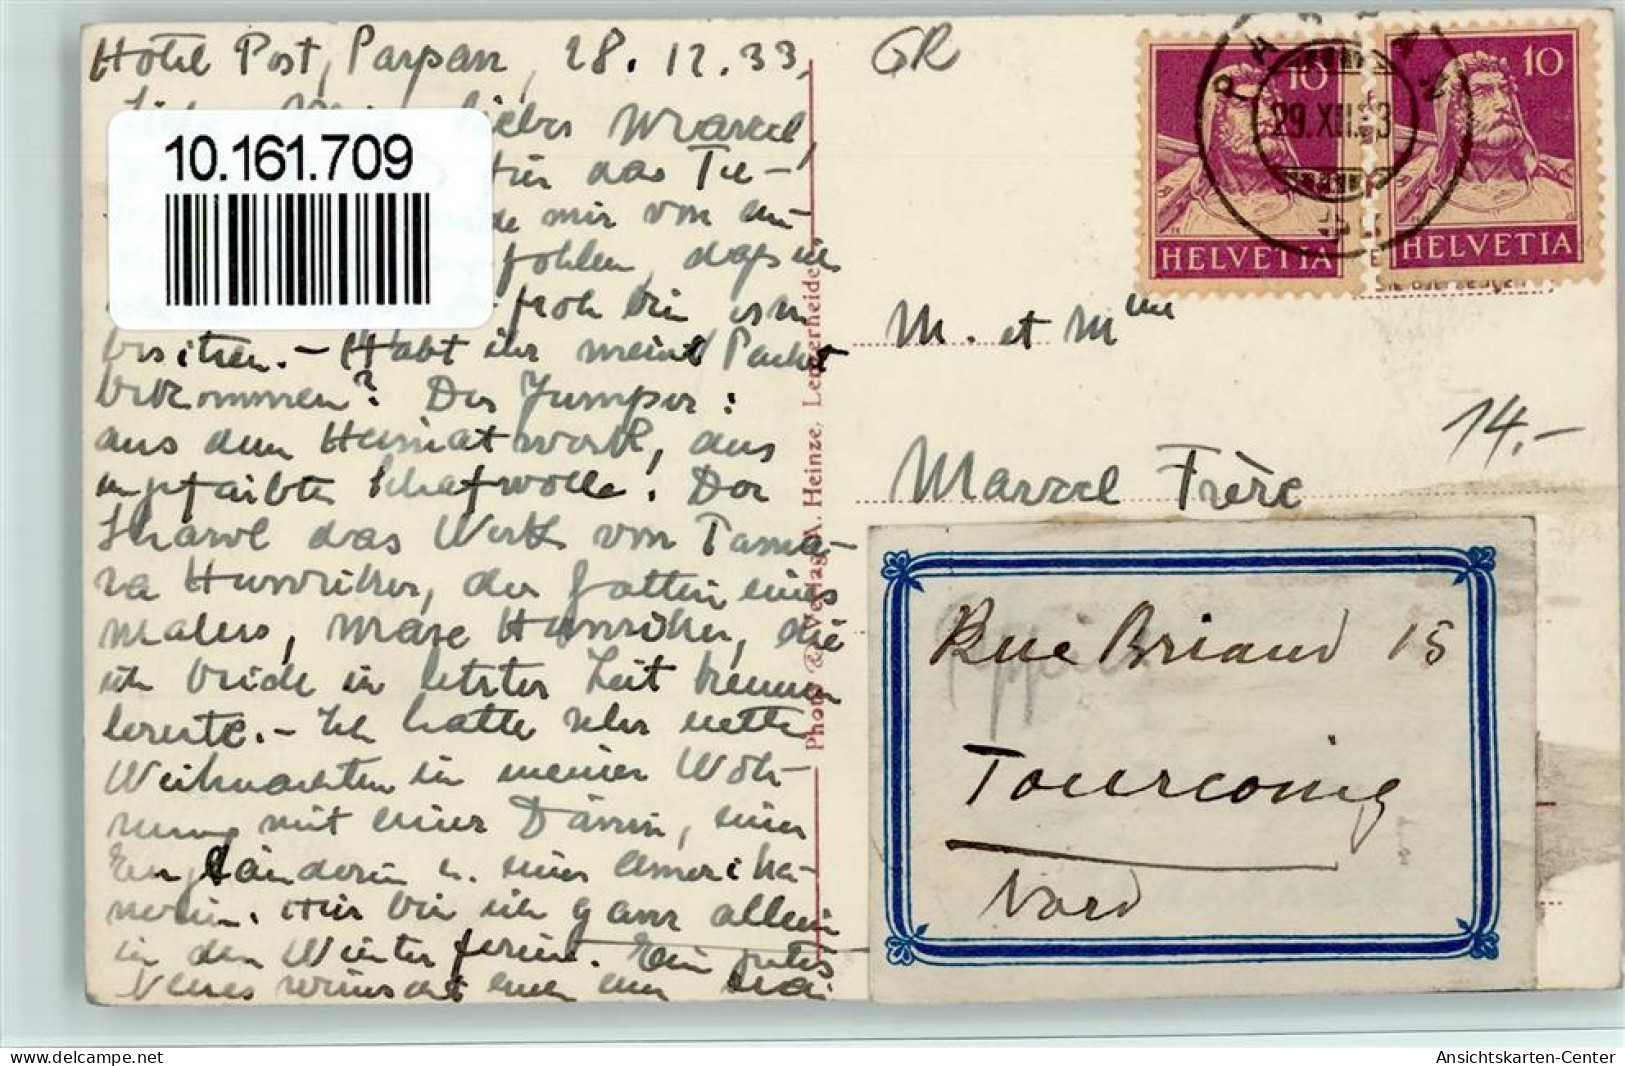 Hotel Post, Parpan, 28.12.33,
liebes Marcel,
für das Te-
mir von ein-
fohlen, dass ich
froh bin es zu
besitzen. - Habt ihr meine Packet
bekommen? Der Jumper:
aus dem Heimatwerk, aus
ungefärbter Schafwolle! Der
Shawl das Werk von Tama-
ra
Malers, die
ich beide in letzter Zeit kennen
lernte. - Ich hatte sehr nette
Weihnachten in meiner Woh-
nung mit einer Dänin, einer
Engländerin u. einer Amerika-
nerin. Hier bin ich ganz allein
in den Winterferien. Ein gutes
Neues wünscht euch
10.161.709
Photo & Verlag A. Heinze, Lenzerheide
GR
PARPAN
29.XII.33
10
HELVETIA
10
HELVETIA
M. et Mme
14.-
Marcel Frère
Rue Briand 15
Tourcoing
Nord
Ansichtskarten-Center.com
Ansichtskarten-Center